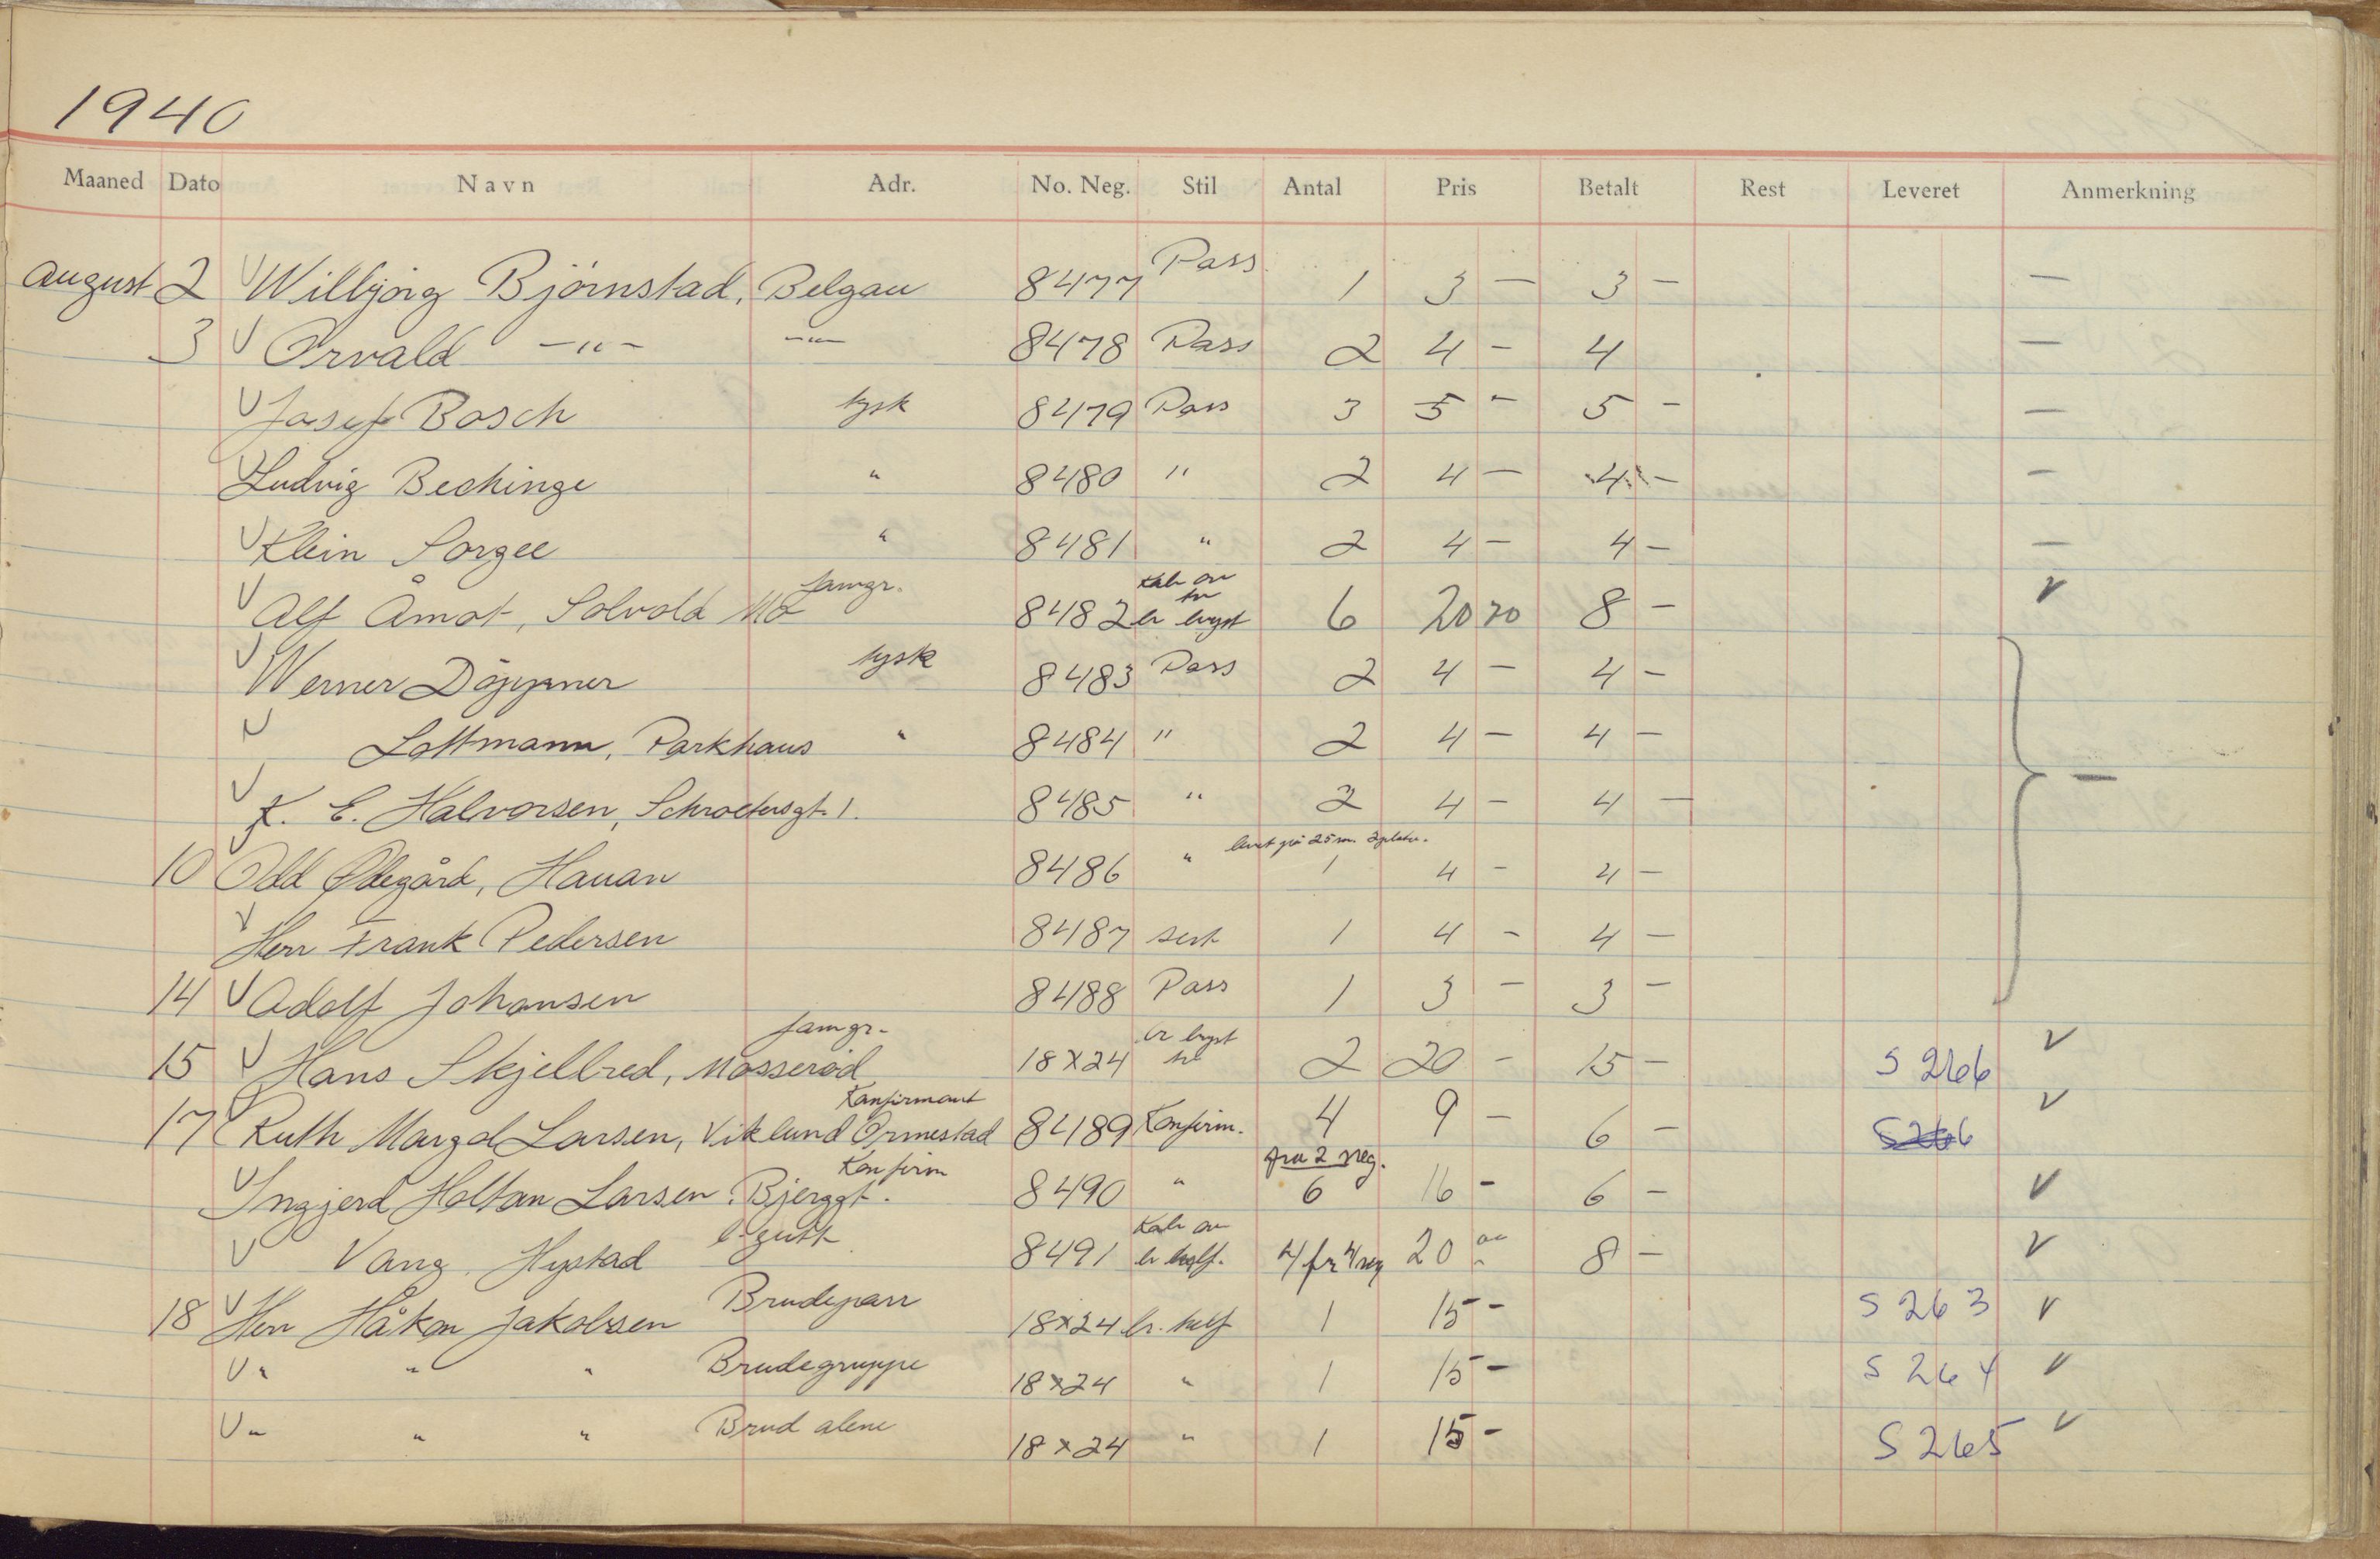 1940
Maaned Dato Navn Adr. No. Neg. Stil Antal Pris Betalt Rest Leveret Anmerkning
August 2 V Wilbjörg Björnstad, Belgau 8477 Pass 1 3 — 3 — —
3 V Orvald —"— —"— 8478 Pass 2 4 — 4 —
V Josef Bosch tysk 8479 Pass 3 5 — 5 — —
V Ludvig Bechinge " 8480 " 2 4 — 4 — —
V Klein Sorgee " 8481 " 2 4 — 4 — —
V Alf Åmot, Solvold famgr. 8482 6 20 20 8 — V
V Werner Döppner tysk 8483 Pass 2 4 — 4 —
V Lottmann, Parkhaus " 8484 " 2 4 — 4 —
V K. E. Halvorsen, Schroetersgt. 1. 8485 " 2 4 — 4 — —
10 V Odd Ødegård, Hauan 8486 " 1 4 — 4 —
V Herr Frank Pedersen 8487 sert 1 4 — 4 —
14 V Adolf Johansen 8488 Pass 1 3 — 3 —
15 V Hans Skjellred, Mosserød famgr. 18x24 br bryst 2 20 — 15 — S 266 V
17 V Ruth Margol Larsen, Viklund Ormestad Konfirmant 8489 Konfirm. 4 9 — 6 — S266 V
V Ingjerd Holtan Larsen. Bjerggt. Konfirm 8490 " fra 2 neg. 6 16 — 6 — V
V Vang. Hystad 8491 4 fr 4 neg 20 8 — V
18 V Herr Håkon Jakobsen Brudepar 18x24 br. half 1 15 — S 263 V
V " " " Brudegruppe 18x24 " 1 15 — S 264 V
V " " " Brud alene 18x24 " 1 15 — S 265 V